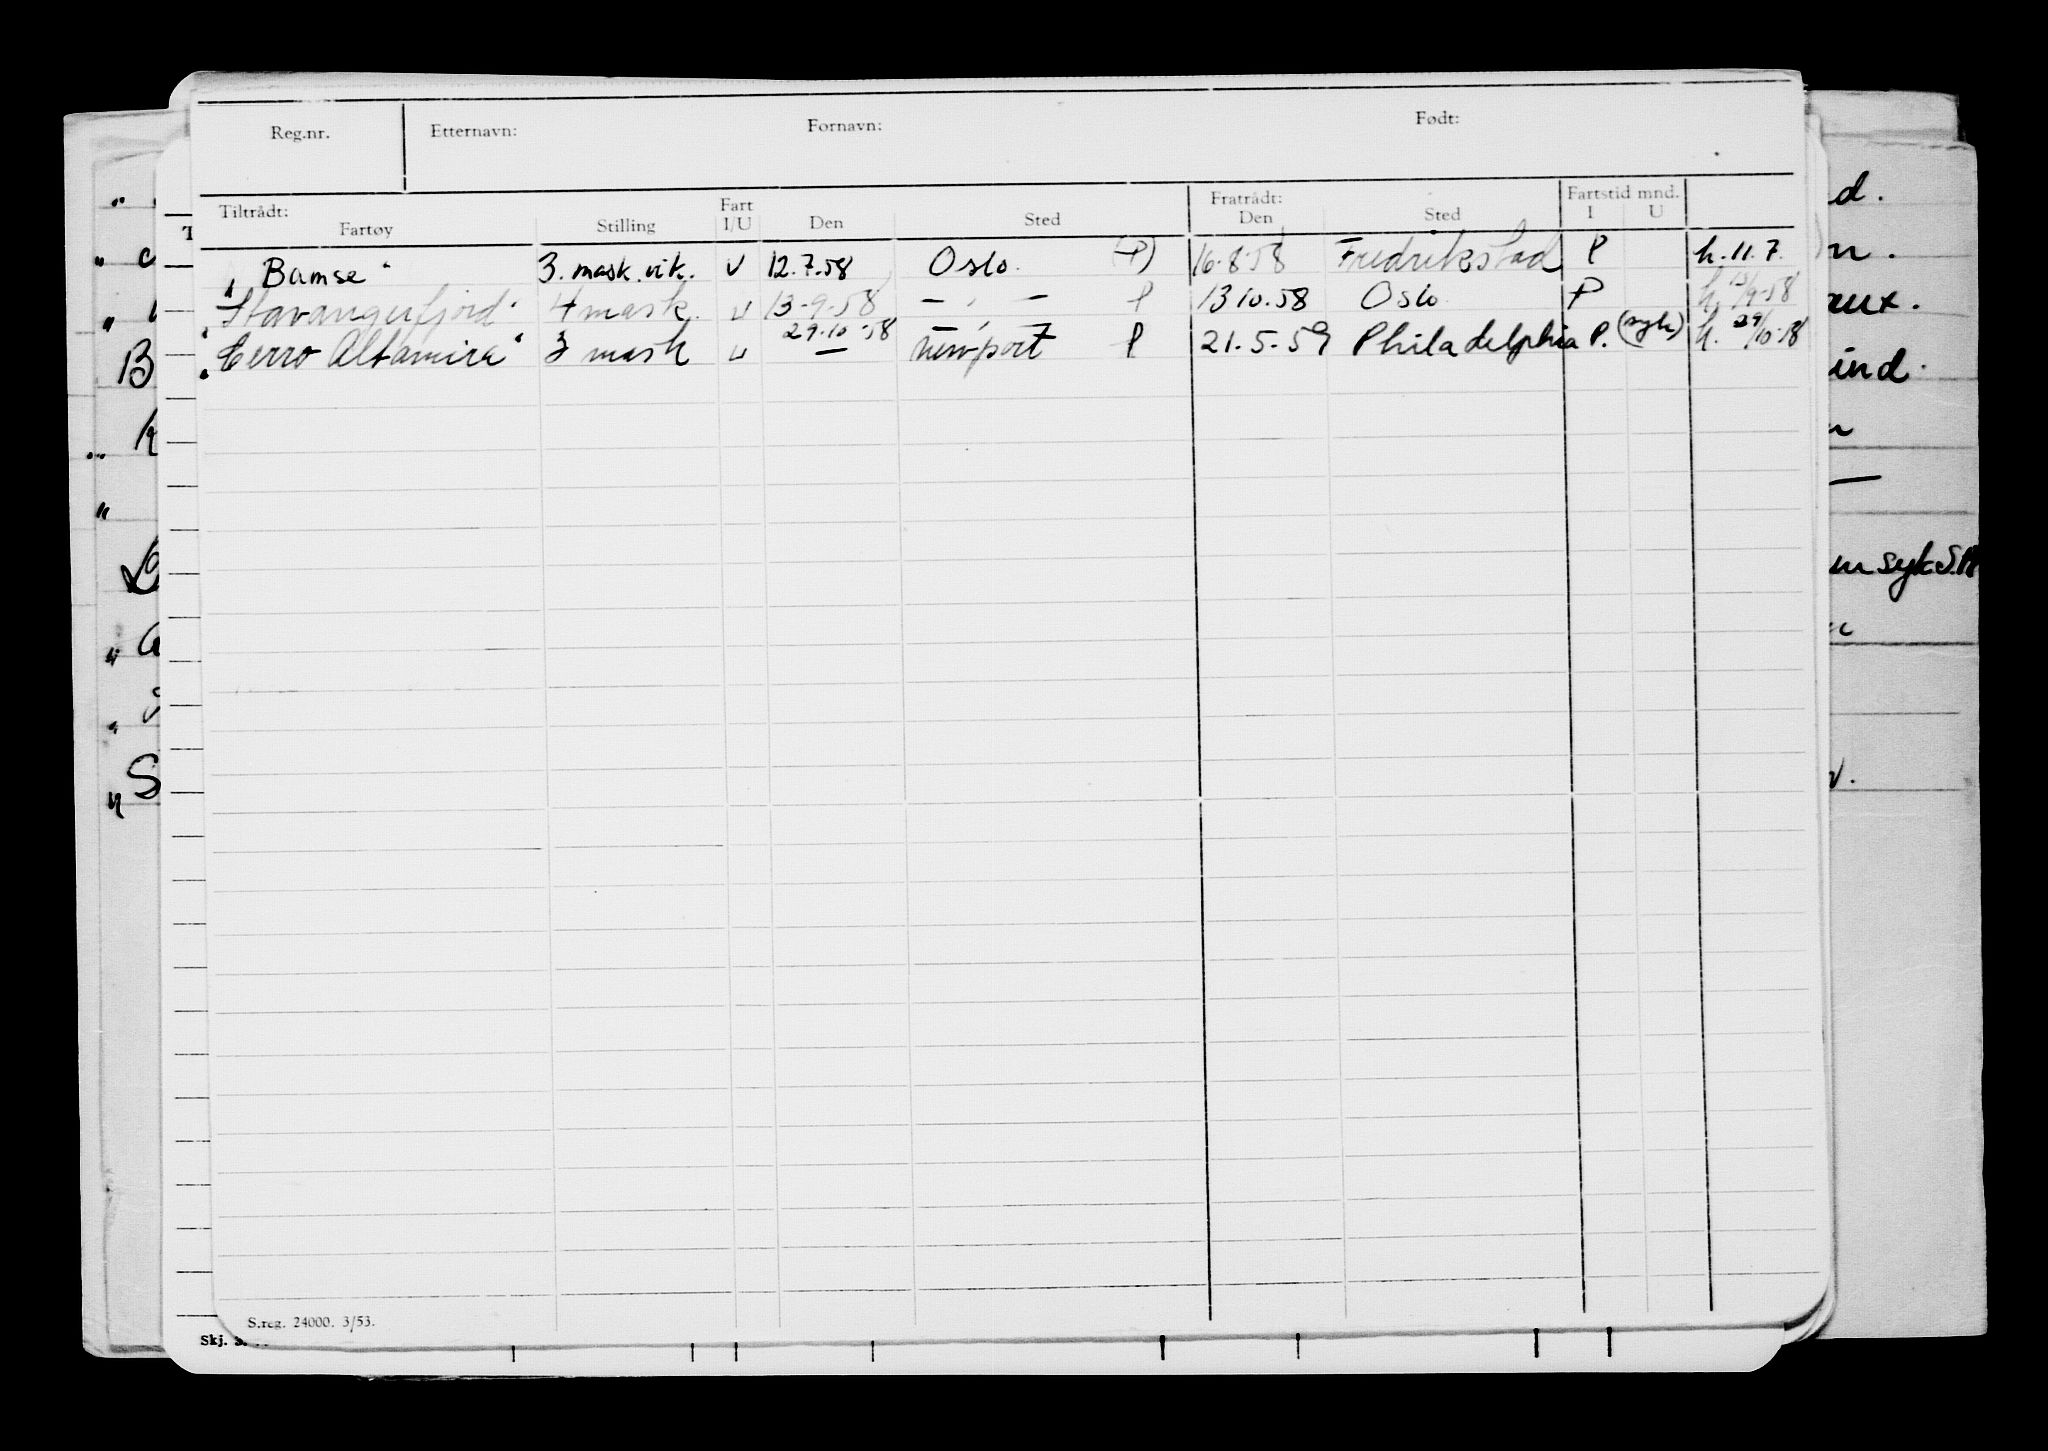 Reg.nr. Etternavn: Fornavn: Født:
Tiltrådt: Fartøy Stilling Fart I/U Den Sted Fratrådt: Den Sted Fartstid mnd. I U
„Bamse“ 3. mask. vik. U 12.7.58 Oslo. (P) 16.8.58 Fredrikstad P h. 11.7.
„Stavangerfjord“ 4 mask. U 13-9-58 — „ — P 13 10.58 Oslo P h. 13/9-58
„Cerro Altamira“ 3 mask U 29.10.58 — Newport P 21.5.59 Philadelphia P. (syk) h. 29/10-58
S.reg. 24000. 3/53.
Skj. S.
d.
n.
aux.
ind.
m syk S.